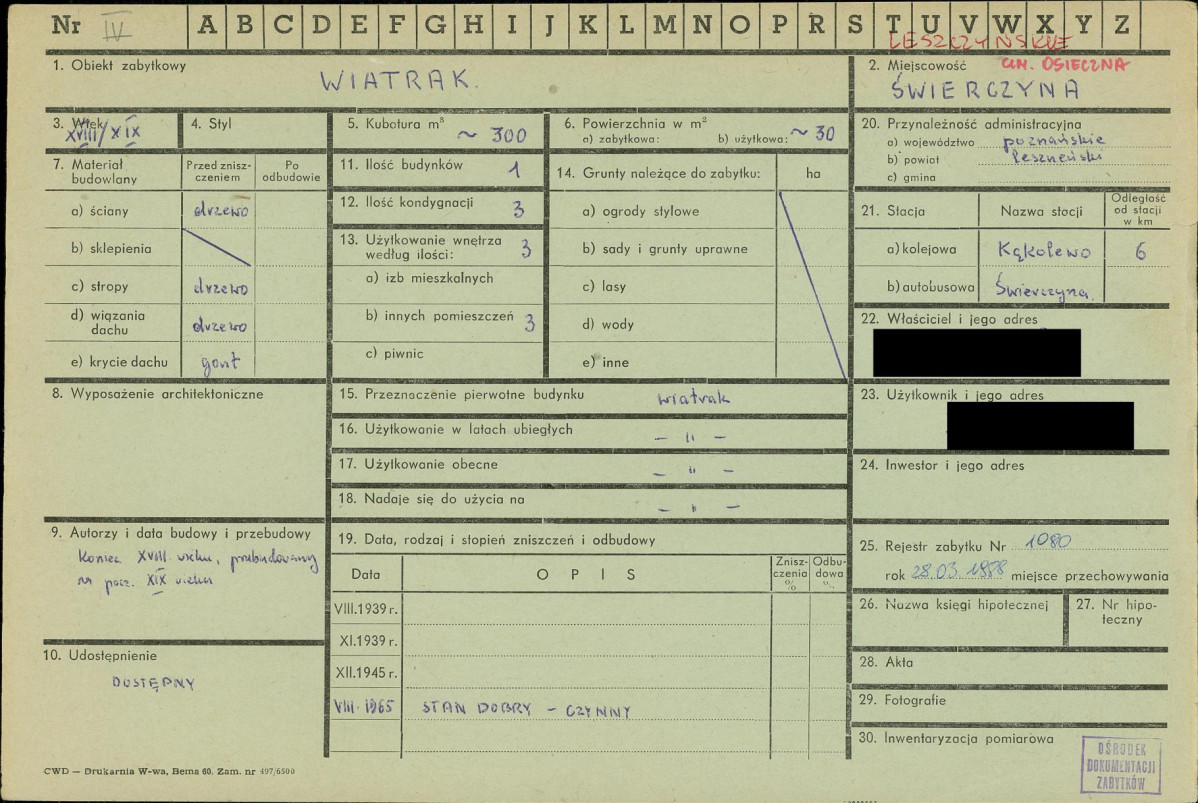 Nr IV A B C D E F G H I J K L M N O P R S T U V W X Y Z
LESZCZYŃSKIE
1. Obiekt zabytkowy
WIATRAK.
2. Miejscowość GM. OSIECZNA
ŚWIERCZYNA
3. Wiek
XVIII/XIX
4. Styl
5. Kubatura m³ ~ 300
6. Powierzchnia w m²
a) zabytkowa: b) użytkowa: ~ 30
7. Materiał budowlany
Przed zniszczeniem
Po odbudowie
a) ściany drzewo
b) sklepienia
c) stropy drzewo
d) wiązania dachu drzewo
e) krycie dachu gont
8. Wyposażenie architektoniczne
9. Autorzy i data budowy i przebudowy
koniec XVIII wieku, przebudowany
na pocz. XIX wieku
10. Udostępnienie
DOSTĘPNY
11. Ilość budynków 1
12. Ilość kondygnacji 3
13. Użytkowanie wnętrza
według ilości: 3
a) izb mieszkalnych
b) innych pomieszczeń 3
c) piwnic
14. Grunty należące do zabytku: ha
a) ogrody stylowe
b) sady i grunty uprawne
c) lasy
d) wody
e) inne
15. Przeznaczenie pierwotne budynku wiatrak
16. Użytkowanie w latach ubiegłych – " –
17. Użytkowanie obecne – " –
18. Nadaje się do użycia na – " –
19. Data, rodzaj i stopień zniszczeń i odbudowy
Data OPIS Zniszczenia % Odbudowa %
VIII.1939 r.
XI.1939 r.
XII.1945 r.
VIII. 1965 STAN DOBRY – CZYNNY
20. Przynależność administracyjna
a) województwo poznańskie
b) powiat leszneński
c) gmina
21. Stacja Nazwa stacji Odległość od stacji w km
a) kolejowa Kąkolewo 6
b) autobusowa Świerczyna
22. Właściciel i jego adres
23. Użytkownik i jego adres
24. Inwestor i jego adres
25. Rejestr zabytku Nr 1080
rok 28.03 1988 miejsce przechowywania
26. Nazwa księgi hipotecznej
27. Nr hipoteczny
28. Akta
29. Fotografie
30. Inwentaryzacja pomiarowa
OŚRODEK
DOKUMENTACJI
ZABYTKÓW
CWD — Drukarnia W-wa, Bema 60. Zam. nr 497/6500